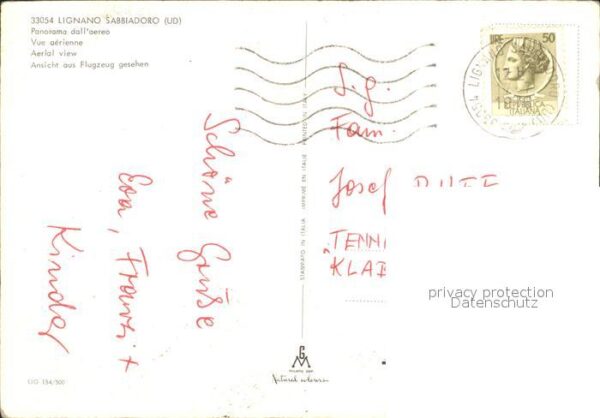 33054 LIGNANO SABBIADORO (UD)
Panorama dall'aereo
Vue aérienne
Aerial view
Ansicht aus Flugzeug gesehen
LIRE 50
Schöne Grüße
Eva, Franzi +
Kinder
STAMPATO IN ITALIA IMPRIMÉ EN ITALIE PRINTED IN ITALY
S. g.
Fam.
Josef
"TENNI
KLA
privacy protection
Datenschutz
GM
UD 154/500